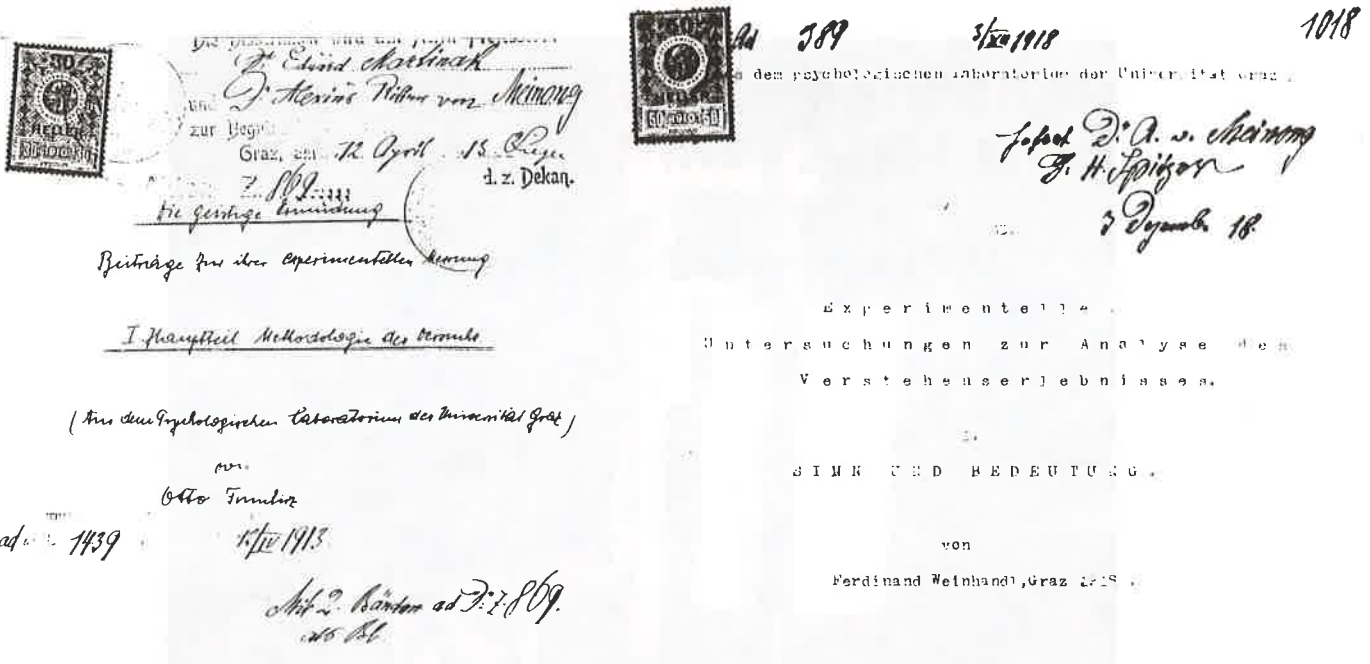 30
HELLER
Die Dissertation wird
Dr Eduard Martinak
und Dr Alexius Ritter von Meinong
zur
Graz, am 12 April 13
d. z. Dekan.
Z. 869
Die geistige Ermüdung
Beiträge zu ihrer experimentellen Messung
I. Hauptteil Methodologie des Versuchs
(Aus dem Psychologischen Laboratorium der Universität Graz)
von
Otto Tumlirz
ad 1439
1913
Mit 2. Bänden ad D. Z. 869.
HELLER
ad 389 3/XII 1918 1018
dem psychologischen Laboratorium der Universität Graz.
Dr. A. v. Meinong
H. Spitzer
3 Dezember 18.
Experimentelle
Untersuchungen zur Analyse des
Verstehenserlebnisses.
I.
SINN UND BEDEUTUNG.
von
Ferdinand Weinhandl, Graz 1918.